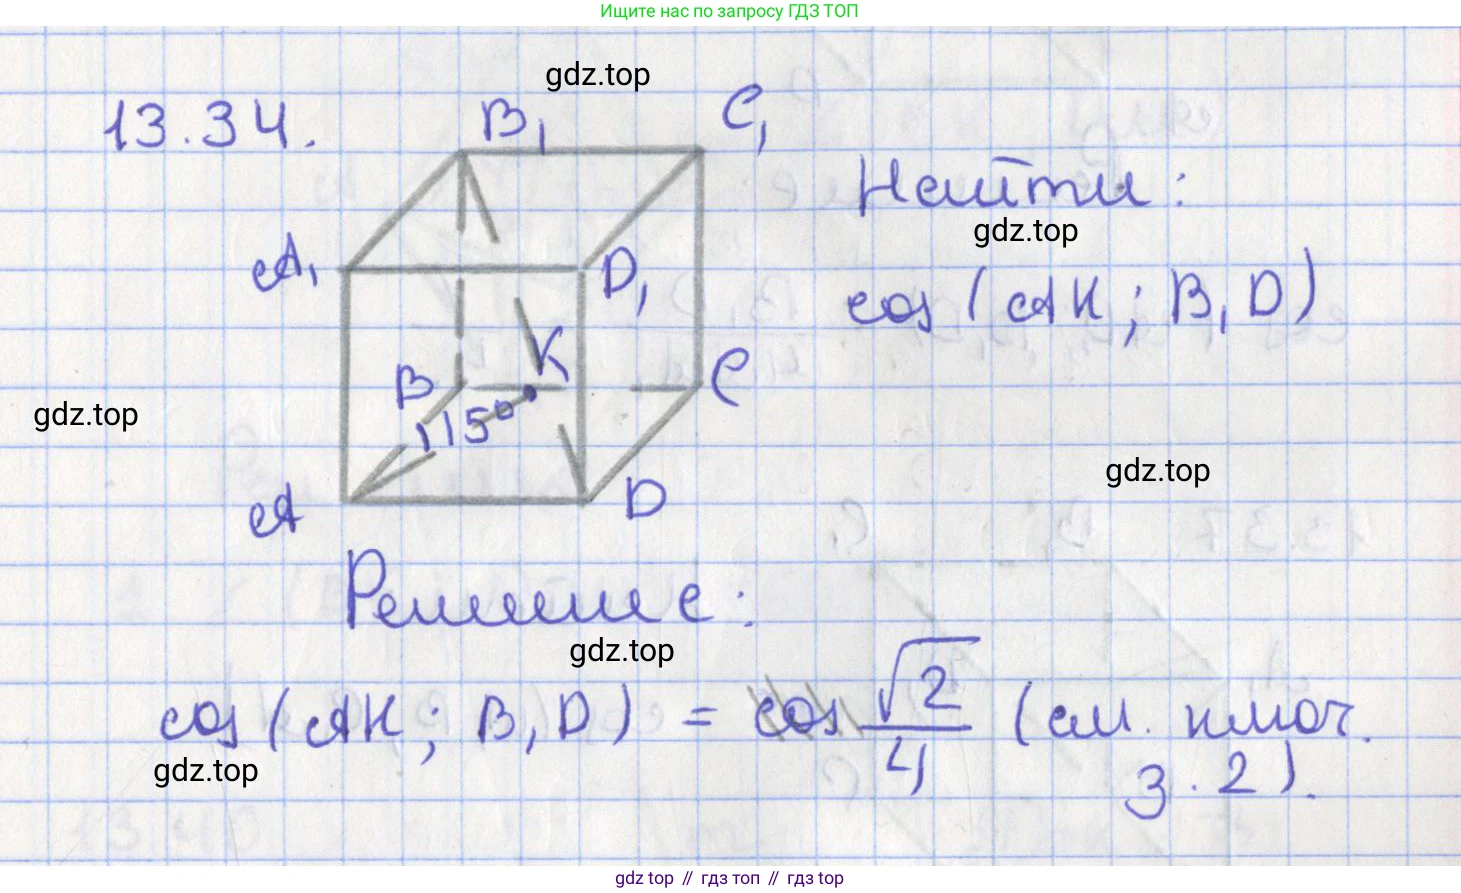 Ищите нас по запросу ГДЗ ТОП
gdz.top
13.34.
B₁
C₁
Найти:
gdz.top
A₁
D₁
cos (AK; B₁D)
K
B
C
115°
gdz.top
gdz.top
A
D
Решение:
gdz.top
cos (AK; B₁D) = cos √2/4 (см. ключ.
gdz.top
3.2).
gdz top // гдз топ // гдз top